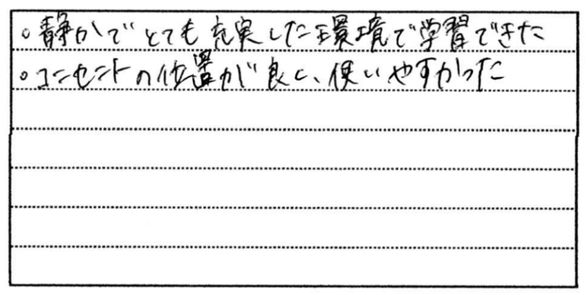 。静かでとても充実した環境で学習できた
。コンセントの位置が良く、使いやすかった